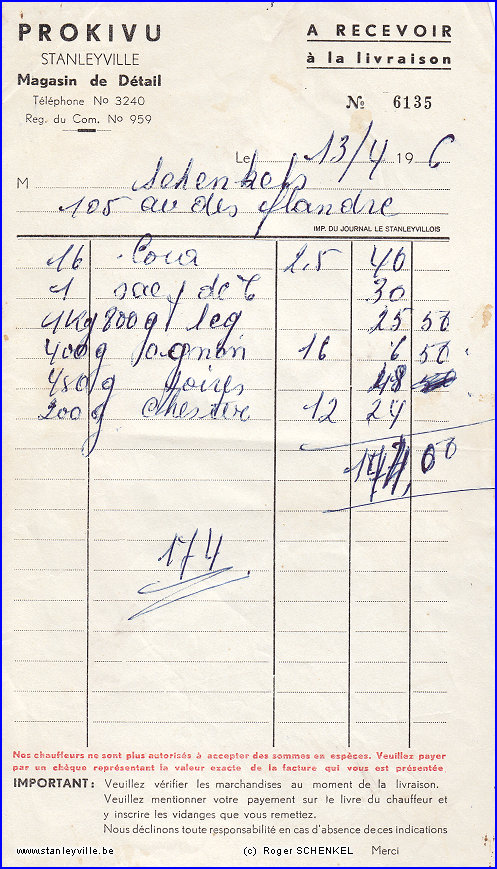 PROKIVU
STANLEYVILLE
Magasin de Détail
Téléphone No 3240
Reg. du Com. No 959
A RECEVOIR
à la livraison
No 6135
Le 13/4 196
M
105 av des flandre
IMP. DU JOURNAL LE STANLEYVILLOIS
16 Coca 2.5 40
1 sac de 30
1Kg 800g leg 25 50
400g ognon 16 6 50
450g poires 48
200g Chestere 12 24
174,00
174
Nos chauffeurs ne sont plus autorisés à accepter des sommes en espèces. Veuillez payer
par un chèque représentant la valeur exacte de la facture qui vous est présentée
IMPORTANT: Veuillez vérifier les marchandises au moment de la livraison.
Veuillez mentionner votre payement sur le livre du chauffeur et
y inscrire les vidanges que vous remettez.
Nous déclinons toute responsabilité en cas d'absence de ces indications
www.stanleyville.be (c) Roger SCHENKEL Merci